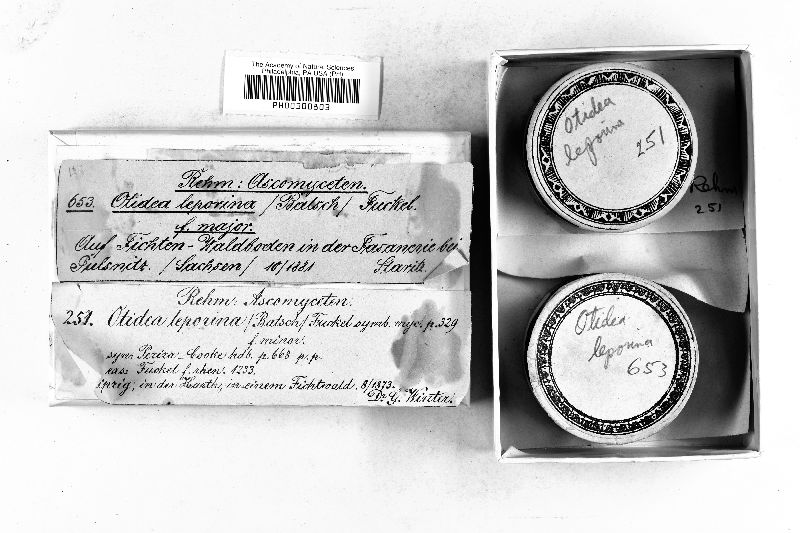 The Academy of Natural Sciences
Philadelphia, PA USA (PH)
Rehm: Ascomyceten.
653. Otidea leporina /Batsch/ Fuckel.
f. major.
Auf Fichten-Waldboden in der Fasanerie bei
Pulsnitz. /Sachsen/ 10/1881 Staritz.
Rehm: Ascomyceten.
251. Otidea leporina /Batsch/ Fuckel symb. myc. p. 329
f. minor.
syn. Peziza Cooke hdb. p. 668 p. p.
exs. Fuckel f. rhen. 1233.
in der Harth, in einem Fichtwald, 8/1873.
Dr. G. Winter.
Otidea
leporina
251
Rehm
251
Otidea
leporina
653